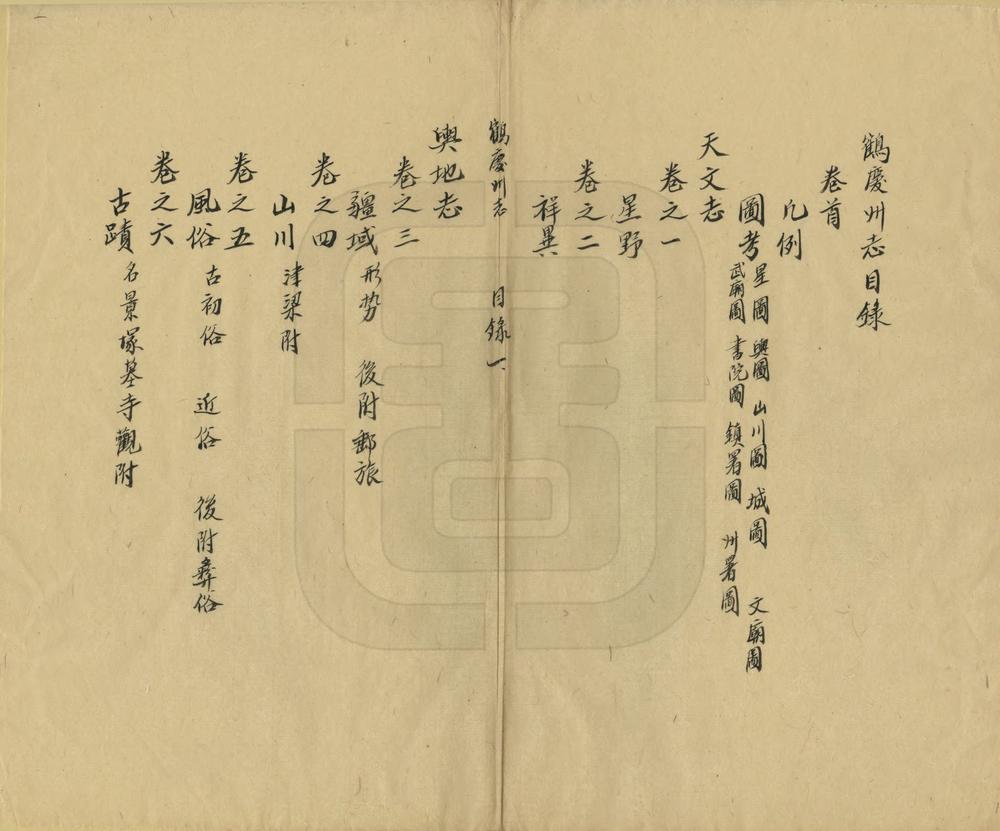 鶴慶州志目錄
卷首
凡例
圖考 星圖 輿圖 山川圖 城圖 文廟圖
武廟圖 書院圖 鎮署圖 州署圖
天文志
卷之一
星野
卷之二
祥異
鶴慶州志 目錄 一
輿地志
卷之三
疆域 形势 後附郵旅
卷之四
山川 津梁附
卷之五
風俗 古初俗 近俗 後附彜俗
卷之六
古蹟 名景塚墓寺觀附